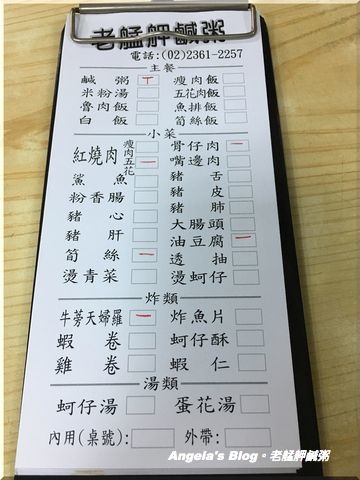 老艋舺鹹粥
電話:(02)2361-2257
主餐
鹹粥 瘦肉飯
米粉湯 五花肉飯
魯肉飯 魚排飯
白飯 筍絲飯
小菜
紅燒肉 瘦肉 五花 骨仔肉
嘴邊肉
鯊魚 豬舌
粉香腸 豬皮
豬心 豬肺
豬肝 大腸頭
筍絲 油豆腐
燙青菜 透抽
燙蚵仔
炸類
牛蒡天婦羅 炸魚片
蝦卷 蚵仔酥
雞卷 蝦仁
湯類
蚵仔湯 蛋花湯
內用(桌號): 外帶:
Angela's Blog。老艋舺鹹粥